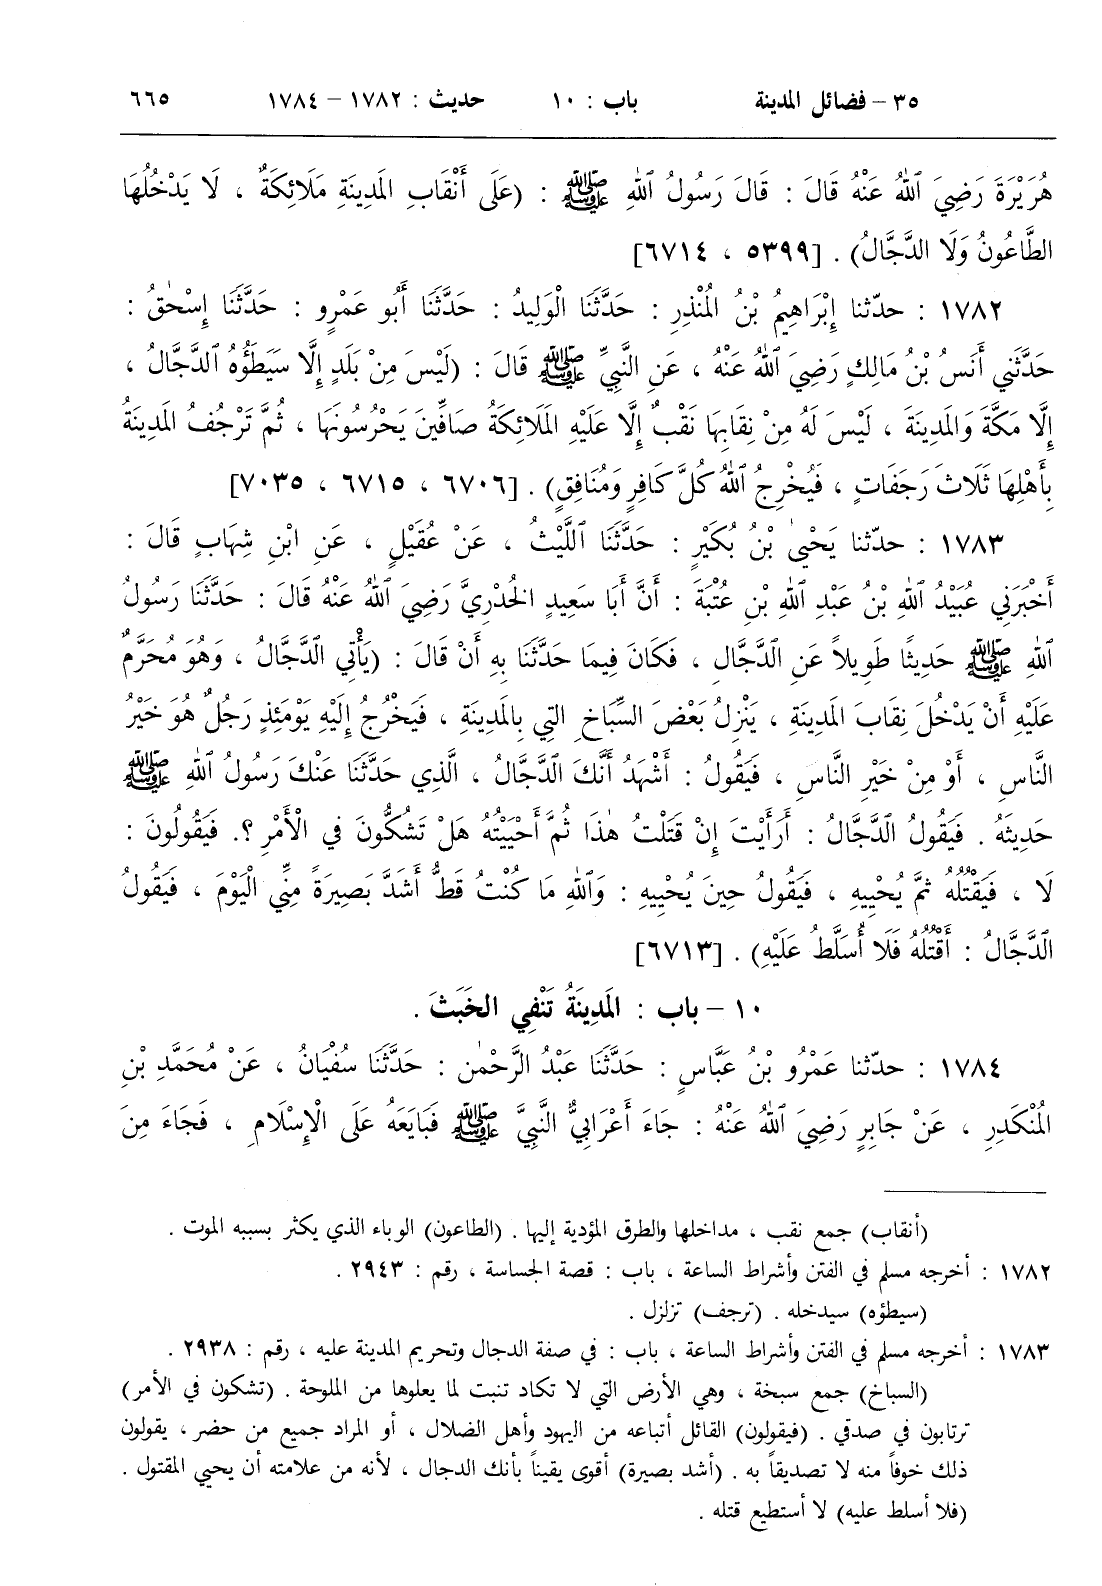 ٣٥ – فضائل المدينة باب : ١٠ حديث : ١٧٨٢ – ١٧٨٤ ٦٦٥
هُرَيْرَةَ رَضِيَ ٱللهُ عَنْهُ قَالَ : قَالَ رَسُولُ ٱللهِ ﷺ : (عَلَى أَنْقَابِ المَدِينَةِ مَلَائِكَةٌ ، لَا يَدْخُلُهَا
الطَّاعُونُ وَلَا الدَّجَّالُ) . [٥٣٩٩ ، ٦٧١٤]
١٧٨٢ : حدّثنا إِبْرَاهِيمُ بْنُ المُنْذِرِ : حَدَّثَنَا الْوَلِيدُ : حَدَّثَنَا أَبُو عَمْرٍو : حَدَّثَنَا إِسْحٰقُ :
حَدَّثَنِي أَنَسُ بْنُ مَالِكٍ رَضِيَ ٱللهُ عَنْهُ ، عَنِ النَّبِيِّ ﷺ قَالَ : (لَيْسَ مِنْ بَلَدٍ إِلَّا سَيَطَؤُهُ ٱلدَّجَّالُ ،
إِلَّا مَكَّةَ وَالمَدِينَةَ ، لَيْسَ لَهُ مِنْ نِقَابِهَا نَقْبٌ إِلَّا عَلَيْهِ المَلَائِكَةُ صَافِّينَ يَحْرُسُونَهَا ، ثُمَّ تَرْجُفُ المَدِينَةُ
بِأَهْلِهَا ثَلَاثَ رَجَفَاتٍ ، فَيُخْرِجُ ٱللهُ كُلَّ كَافِرٍ وَمُنَافِقٍ) . [٦٧٠٦ ، ٦٧١٥ ، ٧٠٣٥]
١٧٨٣ : حدّثنا يَحْيىٰ بْنُ بُكَيْرٍ : حَدَّثَنَا ٱللَّيْثُ ، عَنْ عُقَيْلٍ ، عَنِ ابْنِ شِهَابٍ قَالَ :
أَخْبَرَنِي عُبَيْدُ ٱللهِ بْنُ عَبْدِ ٱللهِ بْنِ عُتْبَةَ : أَنَّ أَبَا سَعِيدٍ الخُدْرِيَّ رَضِيَ ٱللهُ عَنْهُ قَالَ : حَدَّثَنَا رَسُولُ
ٱللهِ ﷺ حَدِيثًا طَوِيلاً عَنِ ٱلدَّجَّالِ ، فَكَانَ فِيمَا حَدَّثَنَا بِهِ أَنْ قَالَ : (يَأْتِي ٱلدَّجَّالُ ، وَهُوَ مُحَرَّمٌ
عَلَيْهِ أَنْ يَدْخُلَ نِقَابَ المَدِينَةِ ، يَنْزِلُ بَعْضَ السِّبَاخِ الَّتِي بِالمَدِينَةِ ، فَيَخْرُجُ إِلَيْهِ يَوْمَئِذٍ رَجُلٌ هُوَ خَيْرُ
النَّاسِ ، أَوْ مِنْ خَيْرِ النَّاسِ ، فَيَقُولُ : أَشْهَدُ أَنَّكَ ٱلدَّجَّالُ ، الَّذِي حَدَّثَنَا عَنْكَ رَسُولُ ٱللهِ ﷺ
حَدِيثَهُ . فَيَقُولُ ٱلدَّجَّالُ : أَرَأَيْتَ إِنْ قَتَلْتُ هٰذَا ثُمَّ أَحْيَيْتُهُ هَلْ تَشُكُّونَ فِي الْأَمْرِ ؟. فَيَقُولُونَ :
لَا ، فَيَقْتُلُهُ ثمَّ يُحْيِيهِ ، فَيَقُولُ حِينَ يُحْيِيهِ : وَٱللهِ مَا كُنْتُ قَطُّ أَشَدَّ بَصِيرَةً مِنِّي الْيَوْمَ ، فَيَقُولُ
ٱلدَّجَّالُ : أَقْتُلُهُ فَلَا أُسَلَّطُ عَلَيْهِ) . [٦٧١٣]
١٠ – باب : المَدِينَةُ تَنْفِي الخَبَثَ .
١٧٨٤ : حدّثنا عَمْرُو بْنُ عَبَّاسٍ : حَدَّثَنَا عَبْدُ الرَّحْمٰنِ : حَدَّثَنَا سُفْيَانُ ، عَنْ مُحَمَّدِ بْنِ
المُنْكَدِرِ ، عَنْ جَابِرٍ رَضِيَ ٱللهُ عَنْهُ : جَاءَ أَعْرَابِيٌّ النَّبِيَّ ﷺ فَبَايَعَهُ عَلَى الْإِسْلَامِ ، فَجَاءَ مِنَ
(أنقاب) جمع نقب ، مداخلها والطرق المؤدية إليها . (الطاعون) الوباء الذي يكثر بسببه الموت .
١٧٨٢ : أخرجه مسلم في الفتن وأشراط الساعة ، باب : قصة الجساسة ، رقم : ٢٩٤٣ .
(سيطؤه) سيدخله . (ترجف) تزلزل .
١٧٨٣ : أخرجه مسلم في الفتن وأشراط الساعة ، باب : في صفة الدجال وتحريم المدينة عليه ، رقم : ٢٩٣٨ .
(السباخ) جمع سبخة ، وهي الأرض التي لا تكاد تنبت لما يعلوها من الملوحة . (تشكون في الأمر)
ترتابون في صدقي . (فيقولون) القائل أتباعه من اليهود وأهل الضلال ، أو المراد جميع من حضر ، يقولون
ذلك خوفاً منه لا تصديقاً به . (أشد بصيرة) أقوى يقيناً بأنك الدجال ، لأنه من علامته أن يحيي المقتول .
(فلا أسلط عليه) لا أستطيع قتله .